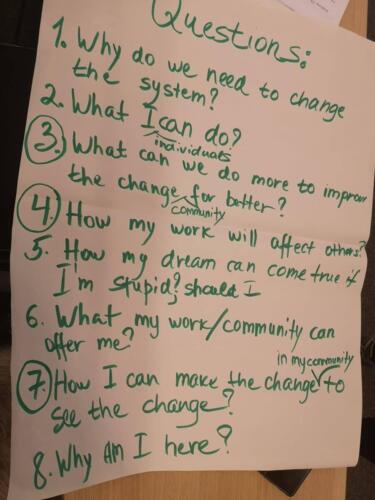 Questions:
1. Why do we need to change
the system?
2. What I can do?
individuals
3. What can we do more to improve
the change for better?
community
4. How my work will affect others?
5. How my dream can come true if
I'm stupid? should I
6. What my work/community can
offer me?
in my community
7. How I can make the change to
see the change?
8. Why Am I here?